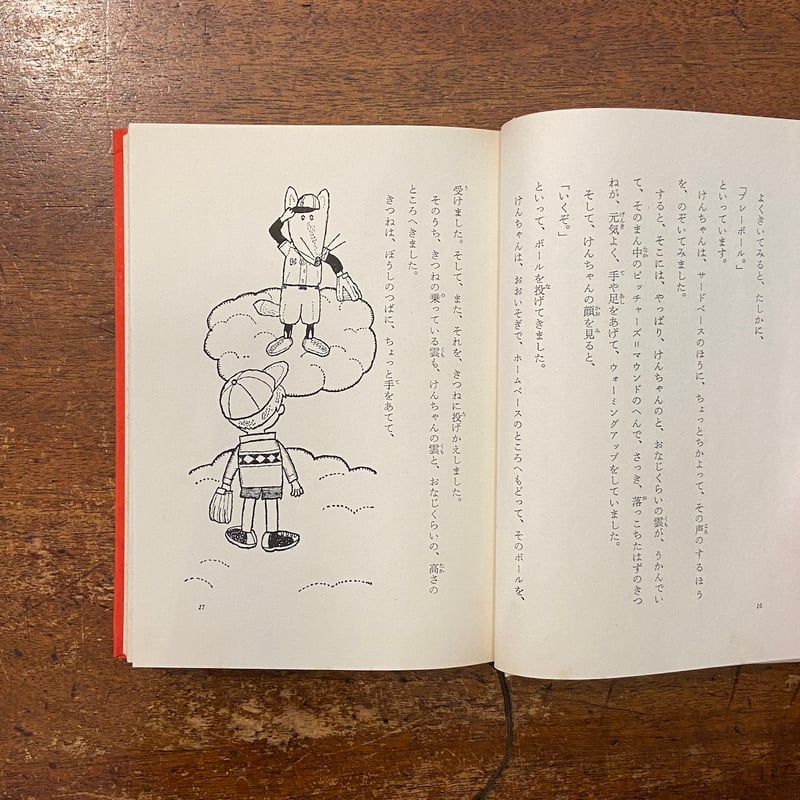 よくきいてみると、たしかに、
「プレーボール。」
といっています。
けんちゃんは、サードベースのほうに、ちょっとちかよって、その声のするほう
を、のぞいてみました。
すると、そこには、やっぱり、けんちゃんのと、おなじくらいの雲が、うかんでい
て、そのまん中のピッチャーズ＝マウンドのへんで、さっき、落っこちたはずのきつ
ねが、元気よく、手や足をあげて、ウォーミングアップをしていました。
そして、けんちゃんの顔を見ると、
「いくぞ。」
といって、ボールを投げてきました。
けんちゃんは、おおいそぎで、ホームベースのところへもどって、そのボールを、
16
受けました。そして、また、それを、きつねに投げかえしました。
そのうち、きつねの乗っている雲も、けんちゃんの雲と、おなじくらいの、高さの
ところへきました。
きつねは、ぼうしのつばに、ちょっと手をあてて、
17